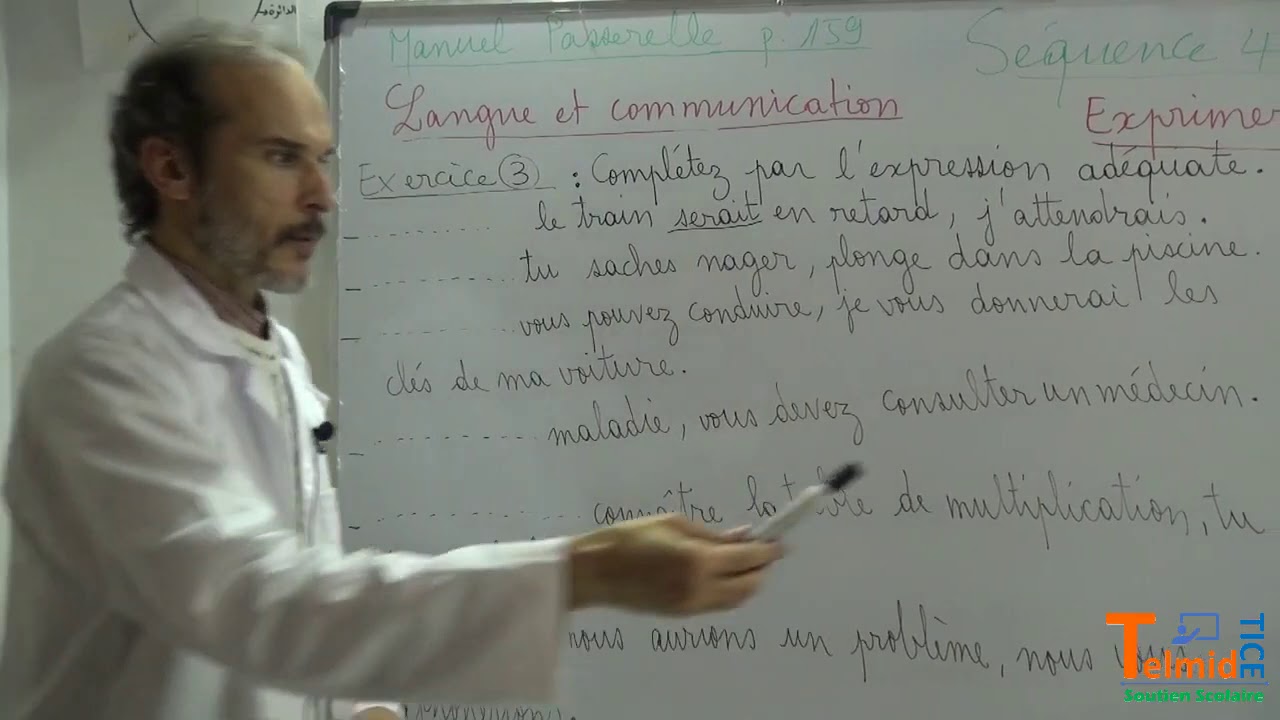 الدائرة
Manuel Passerelle p. 159
Séquence 4
Langue et communication
Exprimer
Exercice ③ : Complétez par l'expression adéquate.
- .......... le train serait en retard, j'attendrais.
- .......... tu saches nager, plonge dans la piscine.
- .......... vous pouvez conduire, je vous donnerai les
clés de ma voiture.
- .......... maladie, vous devez consulter un médecin.
- .......... connaître la table de multiplication, tu
nous aurions un problème, nous vous
Telmid TICE
Soutien Scolaire